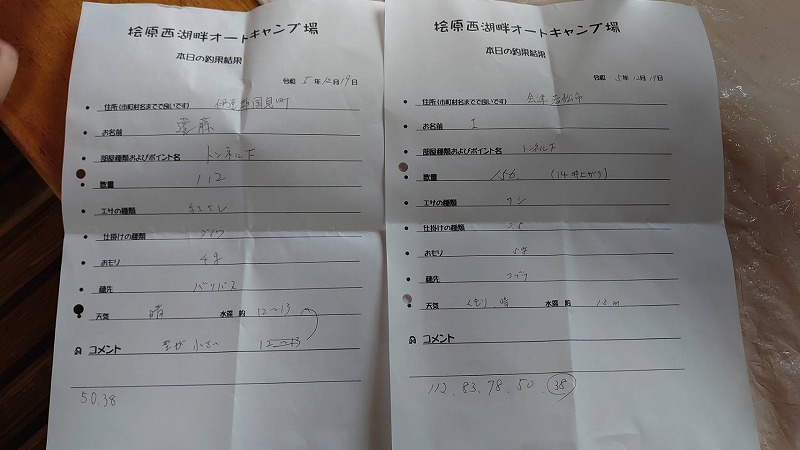 桧原西湖畔オートキャンプ場
本日の釣果結果
令和 5年12月19日
住所(市町村名まででで良いです) 伊達郡国見町
お名前
部屋種類およびポイント名 トンネル下
数量 112
エサの種類 紅サシ
仕掛けの種類
おもり 4g
穂先 バリバス
天気 晴 水深 約 12〜13
コメント 型が小さい 12〜13
50.38
桧原西湖畔オートキャンプ場
本日の釣果結果
令和 5年12月19日
住所(市町村名まで良いです) 会津若松市
お名前 I
部屋種類およびポイント名 トンネル下
数量 156 (14時上がり)
エサの種類
仕掛けの種類 0.5
おもり 5g
穂先
天気 くもり、晴 水深 約 13m
コメント
112、83、78、50 38